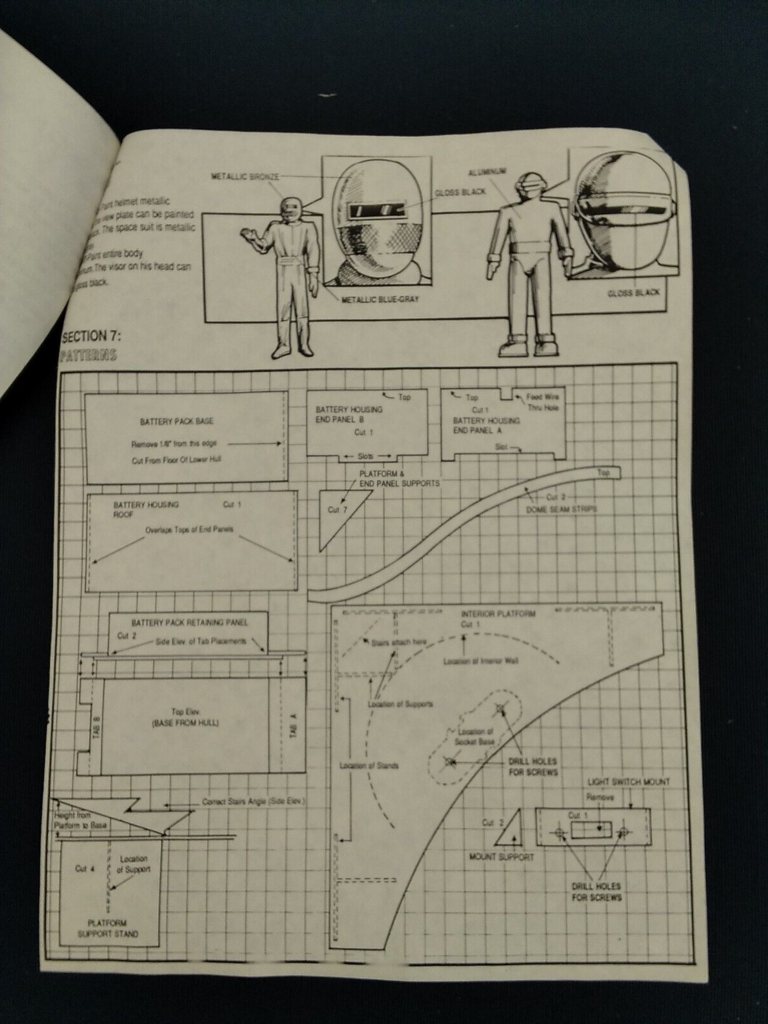 METALLIC BRONZE
ALUMINUM
GLOSS BLACK
helmet metallic
view plate can be painted
The space suit is metallic
Paint entire body
The visor on his head can
black.
METALLIC BLUE-GRAY
GLOSS BLACK
SECTION 7:
PATTERNS
BATTERY PACK BASE
Remove 1/8" from this edge
Cut From Floor Of Lower Hull
Top
BATTERY HOUSING
END PANEL B
Cut 1
Slots
Top
Feed Wire
Thru Hole
Cut 1
BATTERY HOUSING
END PANEL A
Slot
PLATFORM &
END PANEL SUPPORTS
Cut 7
Top
Cut 2
DOME SEAM STRIPS
BATTERY HOUSING
ROOF
Cut 1
Overlaps Tops of End Panels
BATTERY PACK RETAINING PANEL
Cut 2
Side Elev. of Tab Placements
INTERIOR PLATFORM
Cut 1
Stairs attach here
Location of Interior Wall
Top Elev.
(BASE FROM HULL)
TAB B
TAB A
Location of Supports
Location of
Socket Base
Location of Stands
DRILL HOLES
FOR SCREWS
LIGHT SWITCH MOUNT
Remove
Cut 1
Cut 2
MOUNT SUPPORT
DRILL HOLES
FOR SCREWS
Correct Stairs Angle (Side Elev.)
Height from
Platform to Base
Cut 4
Location
of Support
PLATFORM
SUPPORT STAND